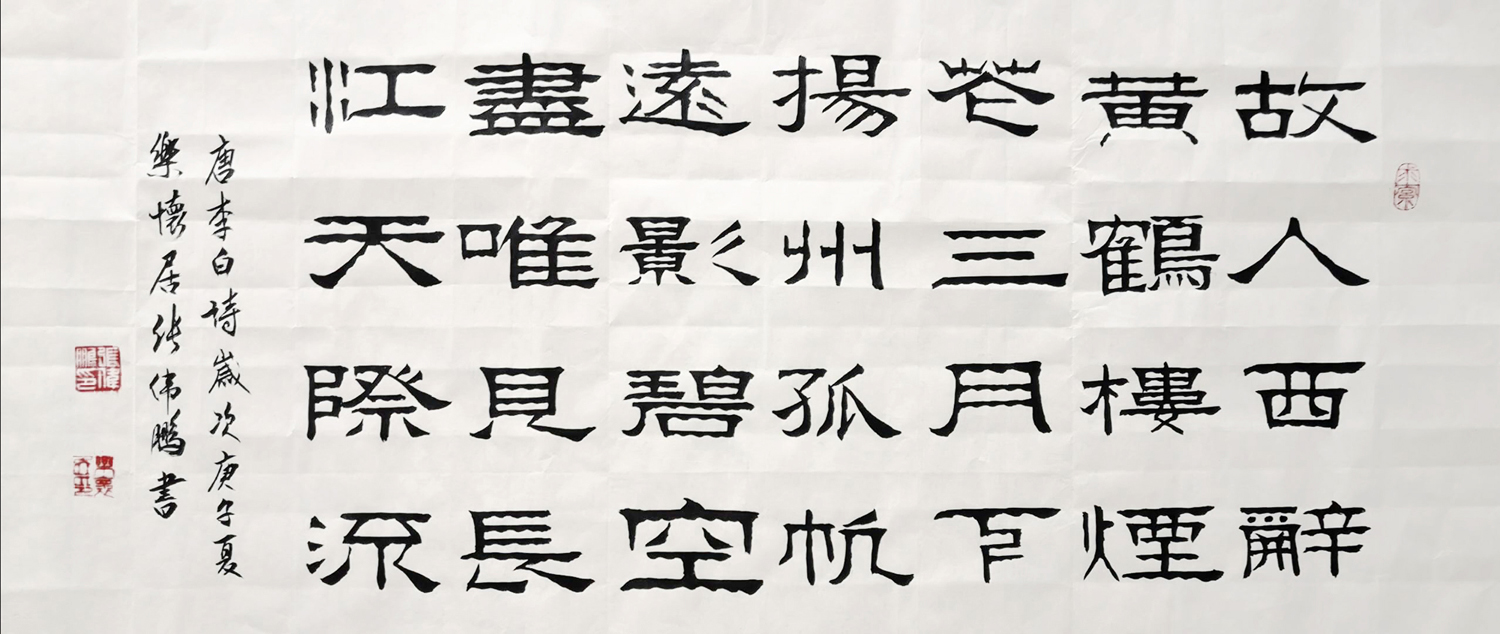 故人西辭
黄鶴樓煙
花三月下
揚州孤帆
遠影碧空
盡唯見長
江天際流
唐李白詩歲次庚子夏
樂懷居張偉鵬書
張偉鵬印